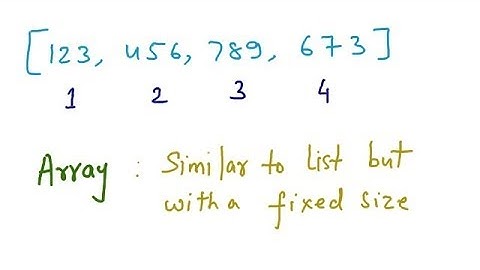 [123, 456, 789, 673]
1 2 3 4
Array : Similar to list but
with a fixed size